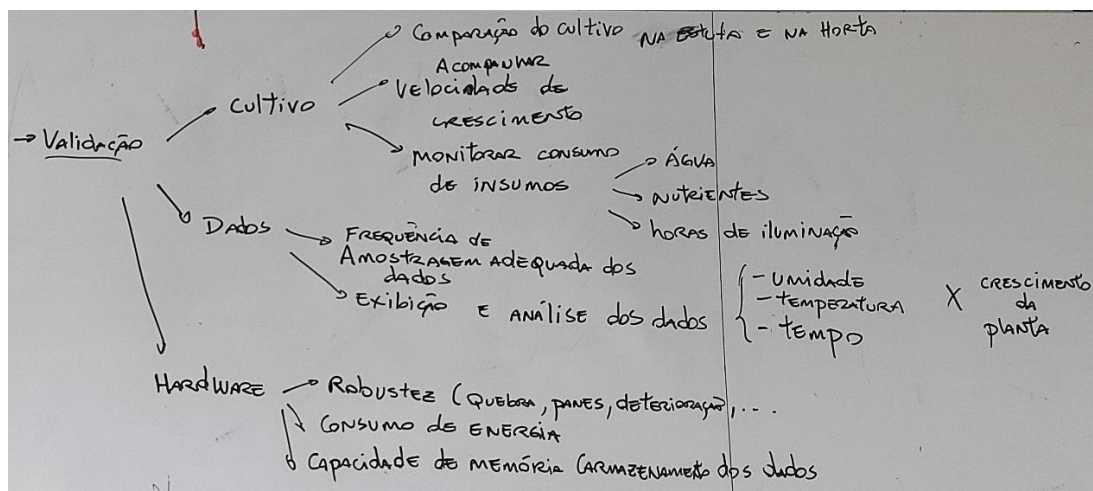 Comparação do cultivo NA EStUfA E NA HORTA
Acompanhar
Velocidade de
crescimento
cultivo
→ Validação
Monitorar consumo
de insumos
Água
Nutrientes
horas de iluminação
Dados
Frequência de
Amostragem adequada dos
dados
Exibição e análise dos dados
- umidade
- temperatura
- tempo
X
crescimento
da
planta
Hardware
Robustez (quebra, panes, deterioração, ...
Consumo de energia
Capacidade de memória (armazenamento dos dados